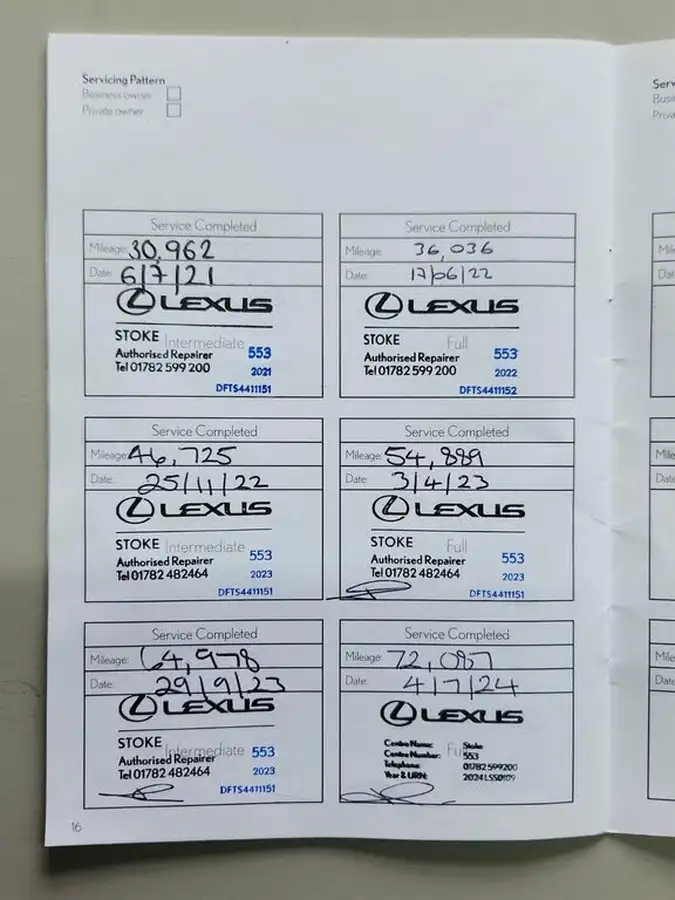 Servicing Pattern
Business owner
Private owner
Service Completed
Mileage: 30,962
Date: 6/7/21
LEXUS
STOKE Intermediate 553
Authorised Repairer
Tel 01782 599 200 2021
DFTS4411151
Service Completed
Mileage: 36,036
Date: 17/06/22
LEXUS
STOKE Full
Authorised Repairer 553
Tel 01782 599 200 2022
DFTS4411152
Service Completed
Mileage: 46,725
Date: 25/11/22
LEXUS
STOKE Intermediate 553
Authorised Repairer
Tel 01782 482464 2023
DFTS4411151
Service Completed
Mileage: 54,889
Date: 3/4/23
LEXUS
STOKE Full
Authorised Repairer 553
Tel 01782 482464 2023
DFTS4411151
Service Completed
Mileage: 64,978
Date: 29/9/23
LEXUS
STOKE Intermediate 553
Authorised Repairer
Tel 01782 482464 2023
DFTS4411151
Service Completed
Mileage: 72,087
Date: 4/7/24
LEXUS
Centre Name: Stoke
Centre Number: 553
Telephone: 01782 599200
Year & URN:
16